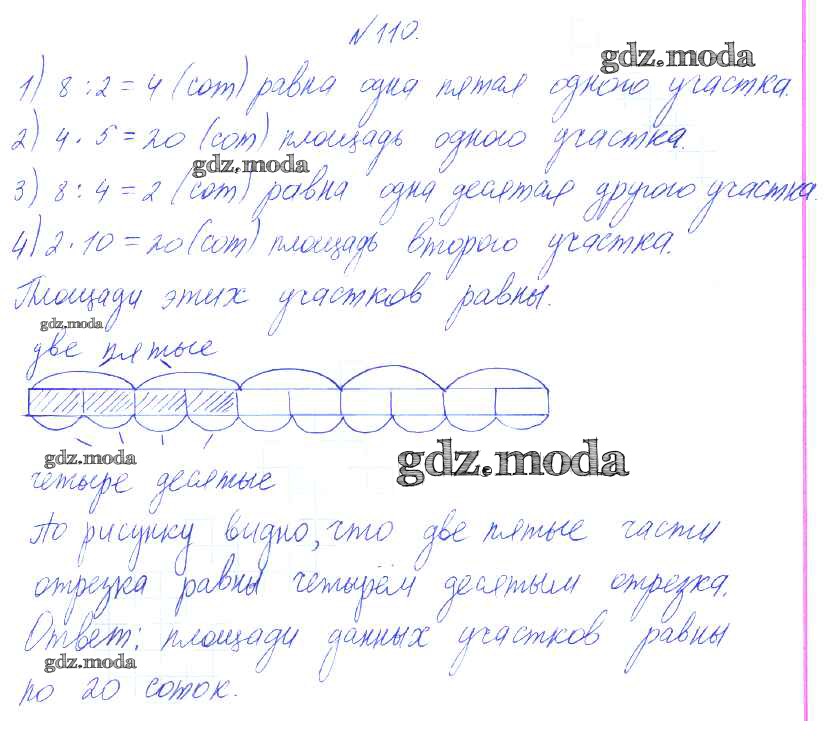 № 110.
gdz.moda
1) 8 : 2 = 4 (сот) равна одна пятая одного участка.
2) 4 · 5 = 20 (сот) площадь одного участка.
gdz.moda
3) 8 : 4 = 2 (сот) равна одна десятая другого участка.
4) 2 · 10 = 20 (сот) площадь второго участка.
Площади этих участков равны.
gdz.moda
две пятые
gdz.moda
gdz.moda
четыре десятые
По рисунку видно, что две пятые части
отрезка равны четырём десятым отрезка.
Ответ: площади данных участков равны
gdz.moda
по 20 соток.